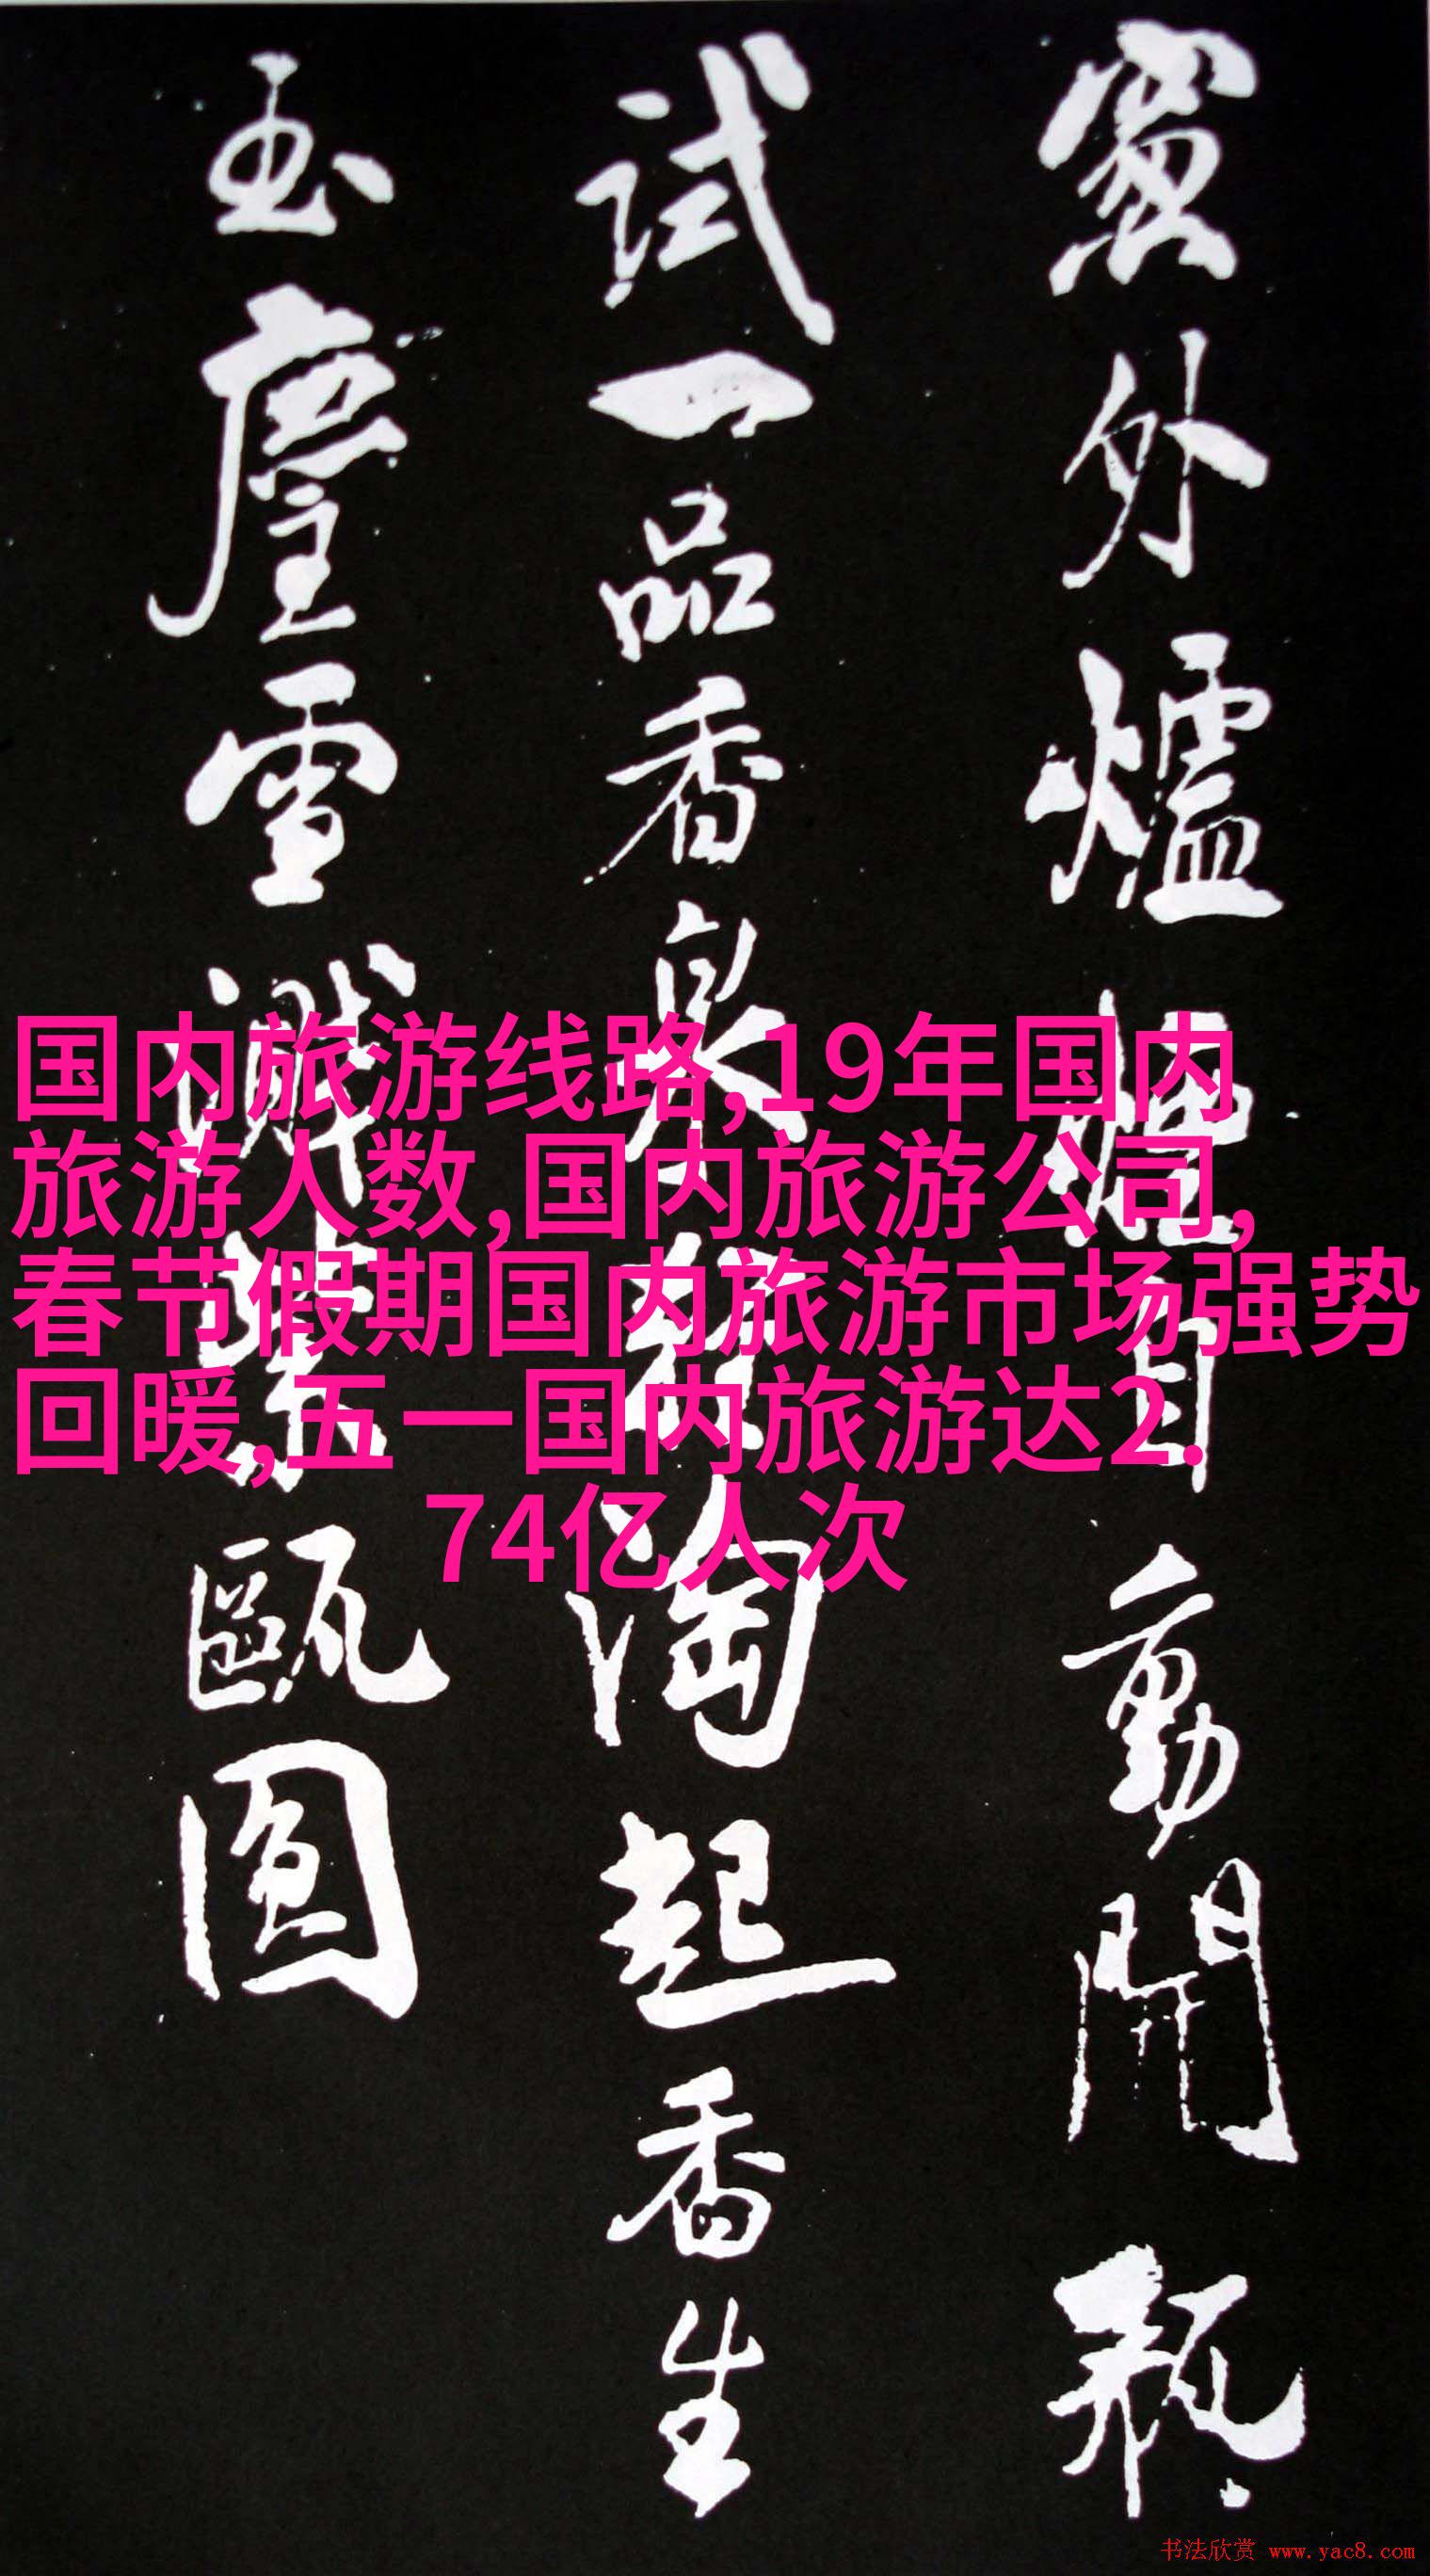 窻外爐煙自動開瓶
試一品香泉輕淘起香生
玉塵雪濺紫甌圓
国内旅游线路,19年国内
旅游人数,国内旅游公司,
春节假期国内旅游市场强势
回暖,五一国内旅游达2.
74亿人次
书法欣赏 www.yac8.com